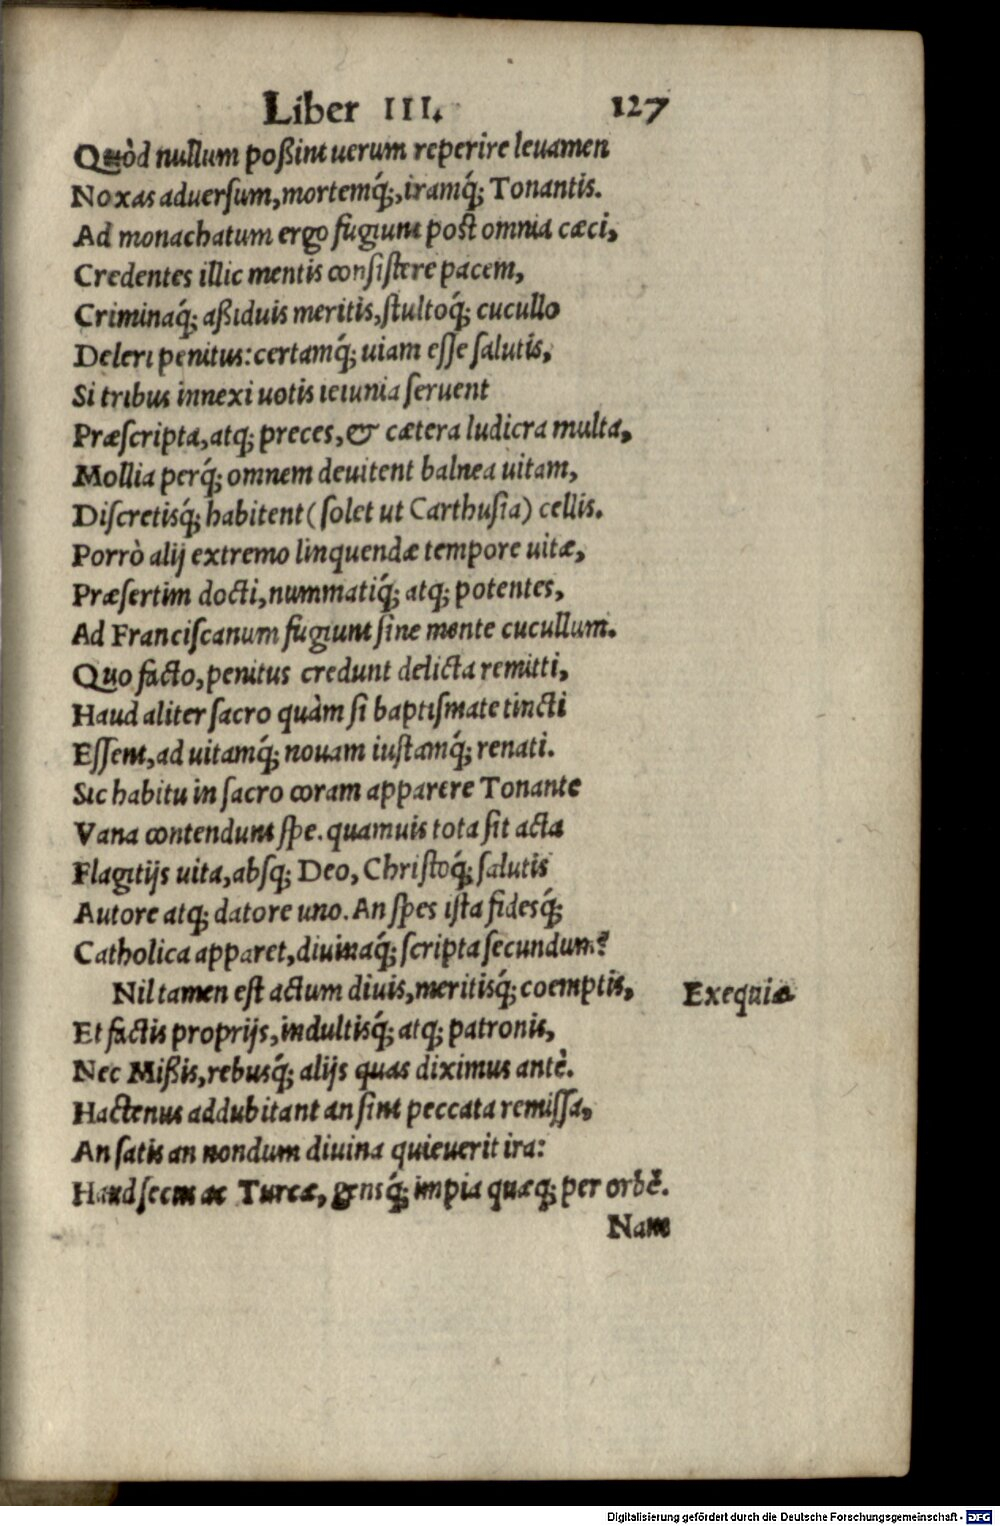 Liber III. 127
Quòd nullum poßint uerum reperire leuamen
Noxas aduersum, mortemq́;, iramq́; Tonantis.
Ad monachatum ergo fugiunt post omnia cæci,
Credentes illic mentis consistere pacem,
Criminaq́; aßiduis meritis, stultoq́; cucullo
Deleri penitus: certamq́; uiam esse salutis,
Si tribus innexi uotis ieiunia seruent
Præscripta, atq; preces, & cætera ludicra multa,
Mollia perq́; omnem deuitent balnea uitam,
Discretisq́; habitent (solet ut Carthusia) cellis.
Porrò alij extremo linquendæ tempore uitæ,
Præsertim docti, nummatiq́; atq; potentes,
Ad Franciscanum fugiunt sine mente cucullum.
Quo facto, penitus credunt delicta remitti,
Haud aliter sacro quàm si baptismate tincti
Essent, ad uitamq́; nouam iustamq́; renati.
Sic habitu in sacro coram apparere Tonante
Vana contendunt spe. quamuis tota sit acta
Flagitijs uita, absq; Deo, Christoq́; salutis
Autore atq; datore uno. An spes ista fidesq́;
Catholica apparet, diuinaq́; scripta secundum?
Nil tamen est actum diuis, meritisq́; coemptis, Exequiæ
Et factis proprijs, indultisq́; atq; patronis,
Nec Mißis, rebusq́; alijs quas diximus antè.
Hactenus addubitant an sint peccata remissa,
An satis an nondum diuina quieuerit ira:
Haud secus ac Turcæ, gensq́; impia quæq; per orbẽ.
Nam
Digitalisierung gefördert durch die Deutsche Forschungsgemeinschaft - DFG